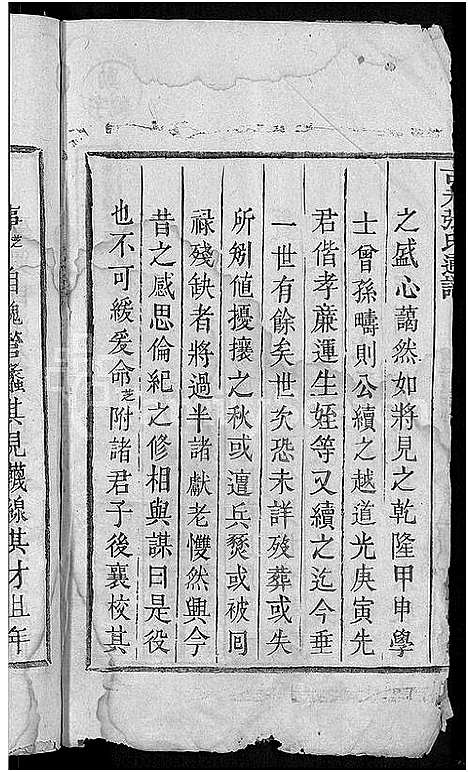 之盛心藹然如將見之乾隆甲申學
士曾孫疇則公續之越道光庚寅先
君偕孝廉運生姪等又續之迄今垂
一世有餘矣世次恐未詳歿葬或失
所矧値擾攘之秋或遭兵燹或被回
祿殘缺者將過半諸獻老戄然興今
昔之感思倫紀之修相與謀曰是役
也不可緩爰命芝附諸君子後襄校其
事芝自愧管蠡其見襪線其才且年